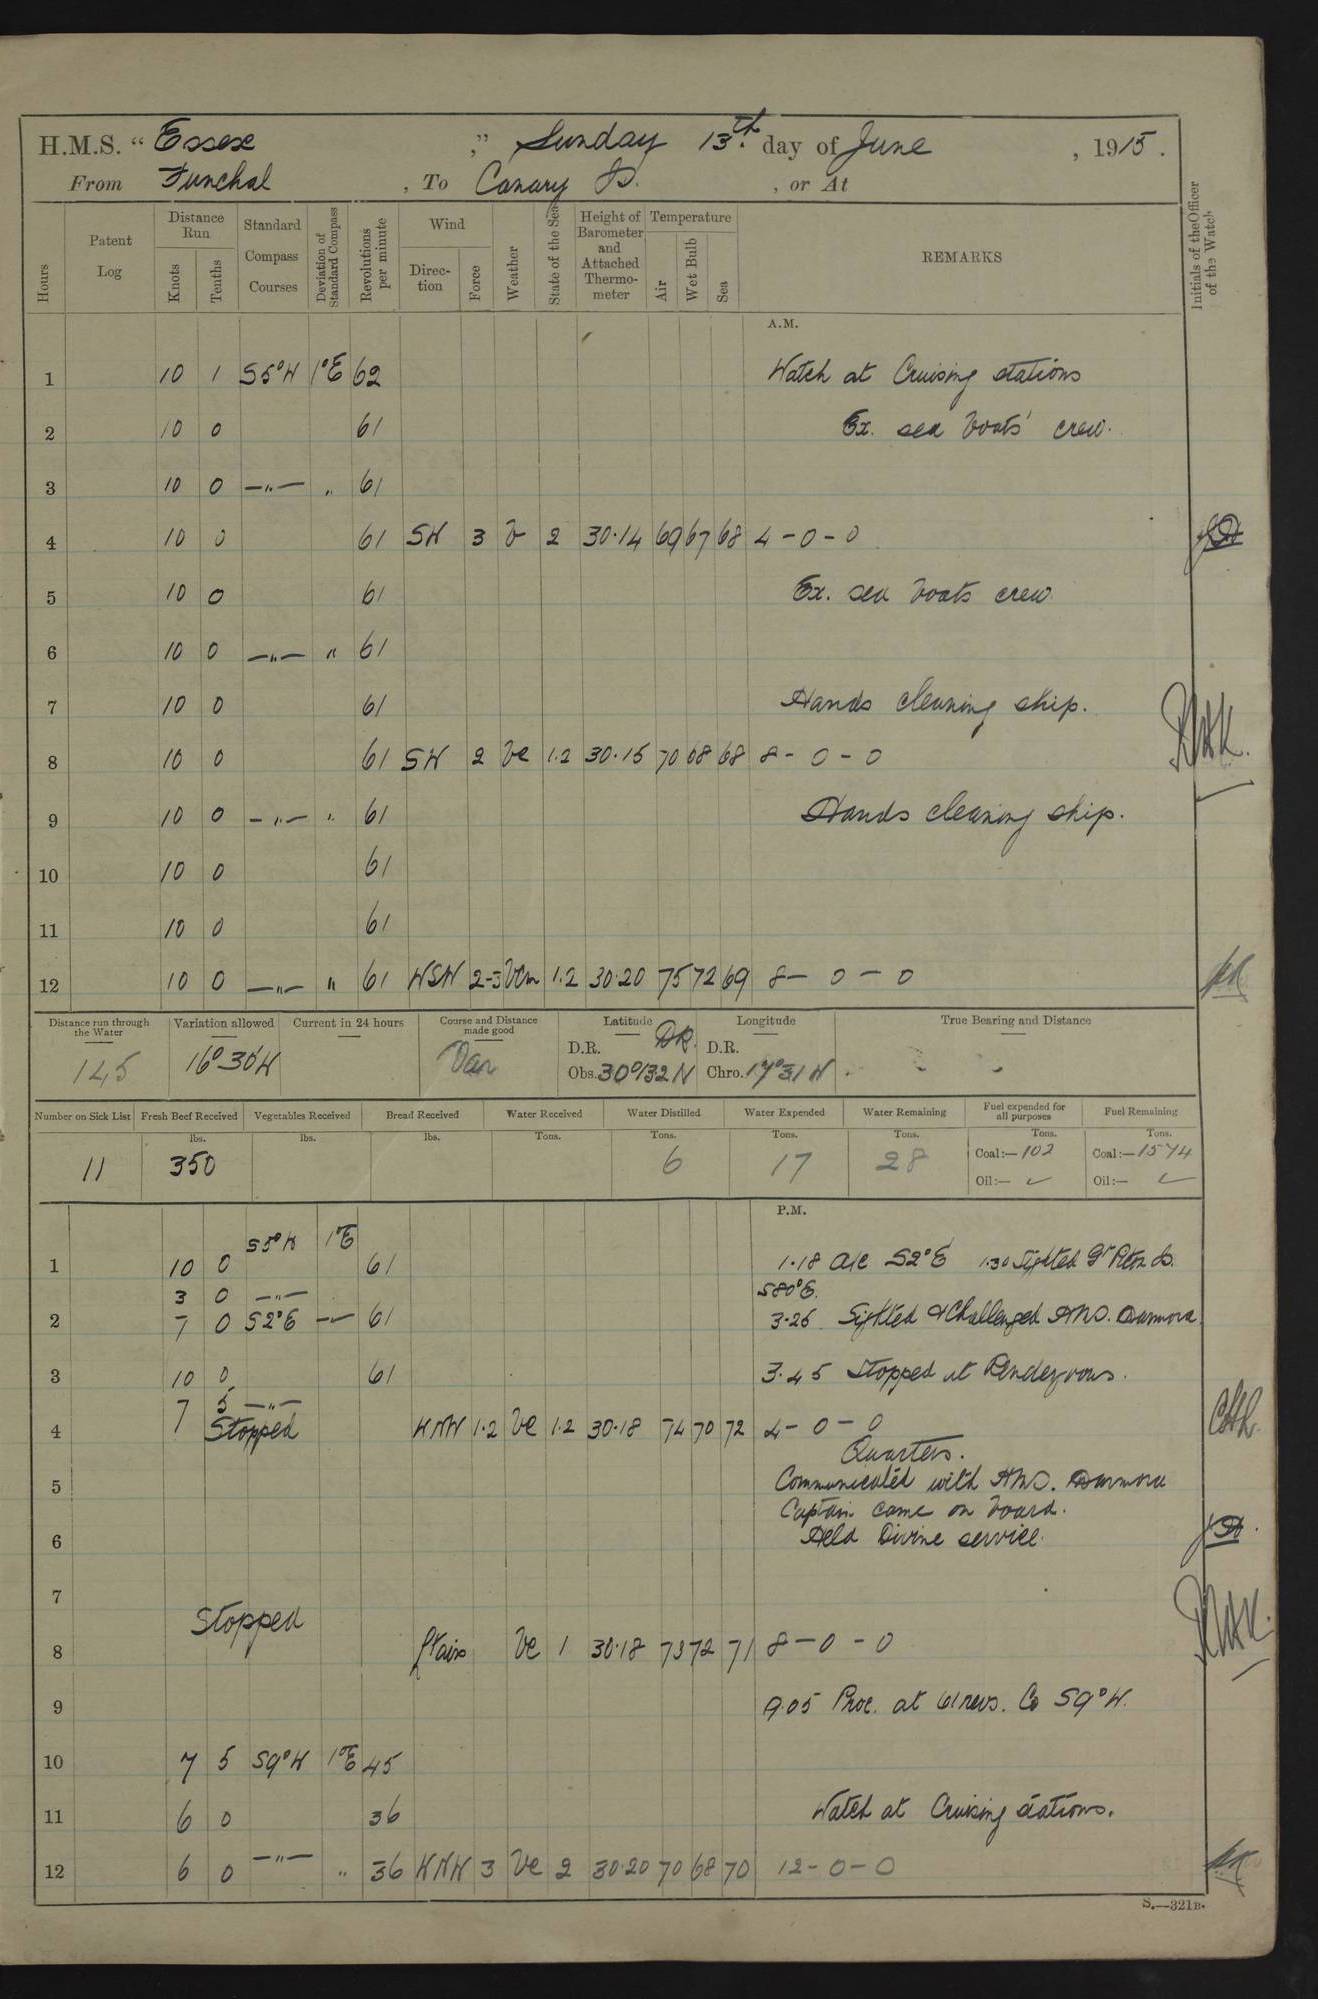 H.M.S. “ Essex ,” Sunday 13th. day of June , 1915 .
From Funchal , To Canary Is. , or At
Hours Patent Log Distance Run Knots Tenths Standard Compass Courses Deviation of Standard Compass Revolutions per minute Wind Direction Force Weather State of the Sea Height of Barometer and Attached Thermometer Temperature Air Wet Bulb Sea REMARKS Initials of the Officer of the Watch
A.M.
1 10 1 S5°W 1°E 62 Watch at Cruising stations
2 10 0 61 Ex. sea boats' crew.
3 10 0 —„— „ 61
4 10 0 61 SW 3 b 2 30·14 69 67 68 4 - 0 - 0
5 10 0 61 Ex. sea boats crew.
6 10 0 —„— „ 61
7 10 0 61 Hands cleaning ship.
8 10 0 61 SW 2 bc 1.2 30·15 70 68 68 8 - 0 - 0
9 10 0 —„— „ 61 Hands cleaning ship.
10 10 0 61
11 10 0 61
12 10 0 —„— „ 61 WSW 2-3 bcm 1.2 30·20 75 72 69 8 - 0 - 0
Distance run through the Water Variation allowed Current in 24 hours Course and Distance made good Latitude Longitude True Bearing and Distance
D.R. DR. D.R.
145 16°30'W Var Obs. 30°32 N Chro. 17°31 W
Number on Sick List Fresh Beef Received Vegetables Received Bread Received Water Received Water Distilled Water Expended Water Remaining Fuel expended for all purposes Fuel Remaining
lbs. lbs. lbs. Tons. Tons. Tons. Tons. Tons. Tons.
11 350 6 17 28 Coal:— 102 Coal:— 1574
Oil:— ✓ Oil:— ✓
P.M.
1 10 0 S5°W 1°E 61 1·18 A/c S2°E 1·30 Sighted Gt Piton Is.
3 0 —„— S80°E.
2 7 0 S2°E —„— 61 3·25 Sighted & Challenged HMS. Carmora
3 10 0 61 3·45 Stopped at Rendezvous.
7 5 —„—
4 Stopped WNW 1·2 bc 1.2 30·18 74 70 72 4 - 0 - 0
Quarters.
5 Communicated with HMS. Carmora
Captain came on board.
6 Held Divine service.
7
Stopped
8 bc 1 30·18 73 72 71 8 - 0 - 0
9 9.05 Proc. at 61 revs. Co S9°W.
10 7 5 S9°W 1°E 45
11 6 0 36 Watch at Cruising stations.
12 6 0 —„— „ 36 WNW 3 bc 2 30·20 70 68 70 12 - 0 - 0
S.—321B.